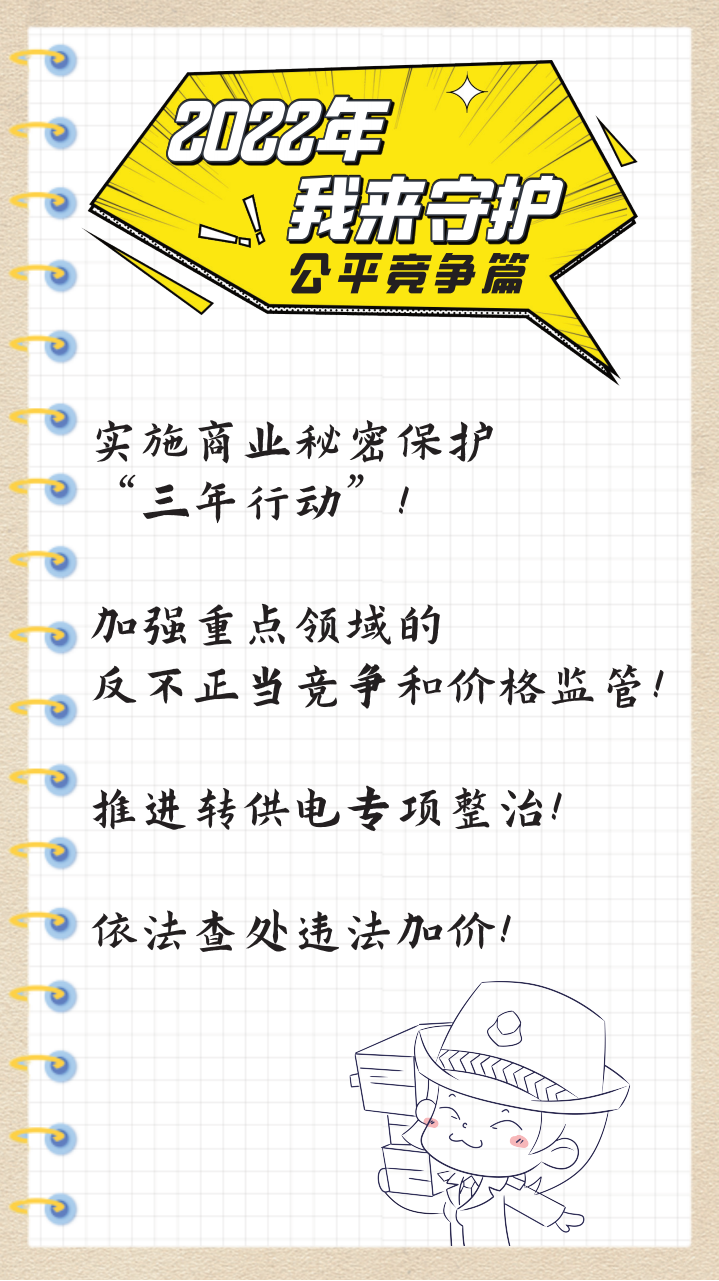 2022年
我来守护
公平竞争篇
实施商业秘密保护
“三年行动”!
加强重点领域的
反不正当竞争和价格监管!
推进转供电专项整治!
依法查处违法加价!